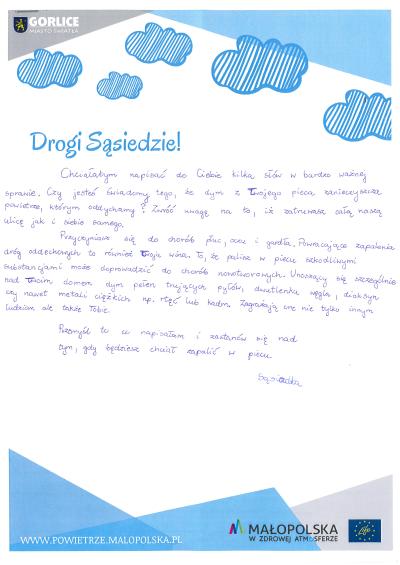 GORLICE
MIASTO ŚWIATŁA
Drogi Sąsiedzie!
Chciałabym napisać do Ciebie kilka słów w bardzo ważnej
sprawie. Czy jesteś świadomy tego, że dym z Twojego pieca zanieczyszcza
powietrze, którym oddychamy? Zwróć uwagę na to, iż zatruwasz całą naszą
ulicę jak i siebie samego.
Przyczyniasz się do chorób płuc, oczu i gardła. Powracające zapalenia
dróg oddechowych to również Twoja wina. To, że palisz w piecu szkodliwymi
substancjami może doprowadzić do chorób nowotworowych. Unoszący się szczególnie
nad Twoim domem dym pełen trujących pyłów, dwutlenku węgla, dioksyn
czy nawet metali ciężkich np. rtęć lub kadm. Zagrażają one nie tylko innym
ludziom ale także Tobie.
Przemyśl to co napisałam i zastanów się nad
tym, gdy będziesz chciał zapalić w piecu
Sąsiadka
WWW.POWIETRZE.MALOPOLSKA.PL
MAŁOPOLSKA
W ZDROWEJ ATMOSFERZE
Life